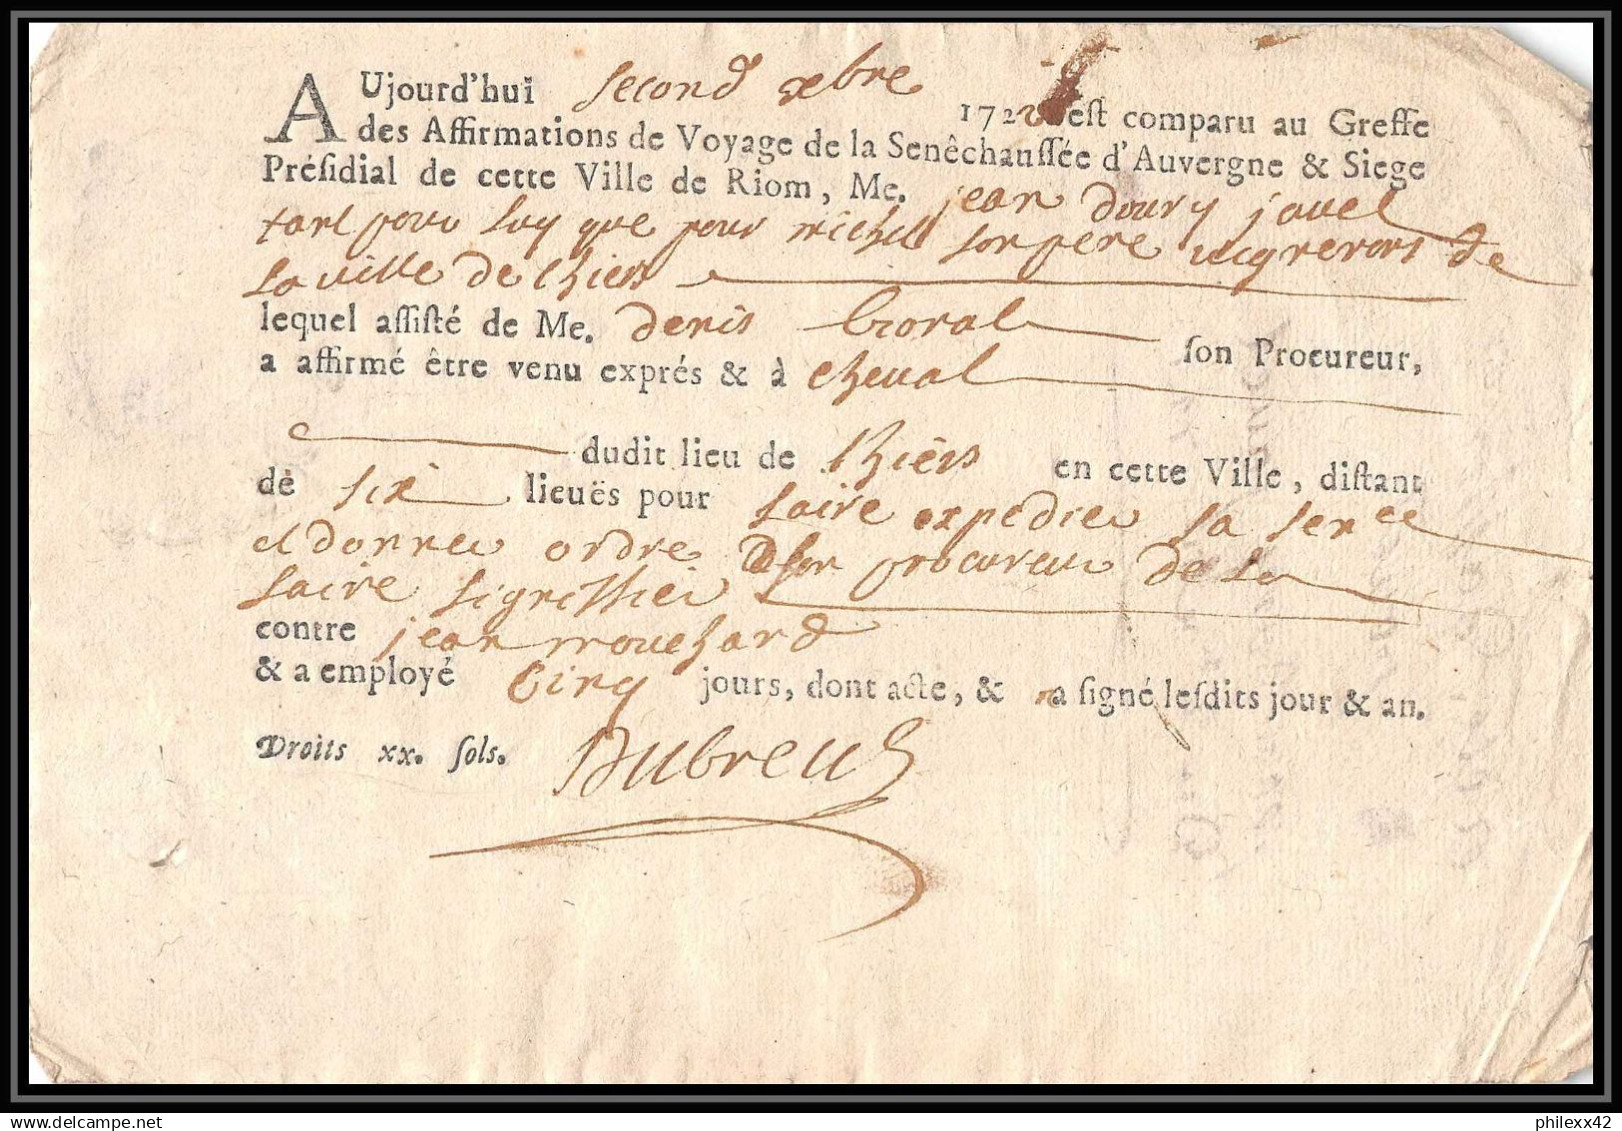 AUjourd'hui second xbre
1722 est comparu au Greffe
des Affirmations de Voyage de la Senêchaussée d'Auvergne & Siege
Présidial de cette Ville de Riom, Me. jean Doury
tant pour luy que pour michel son père de
la ville de thiers
lequel assisté de Me. denis son Procureur,
a affirmé être venu exprés & à cheval
dudit lieu de thiers en cette Ville, distant
de six lieuës pour faire expedier sa sence
et donner ordre a son procureur de la
faire signiffier
contre jean mouchard
& a employé cinq jours, dont acte, & a signé lesdits jour & an.
Droits xx. sols. Dubreuil
philexx42